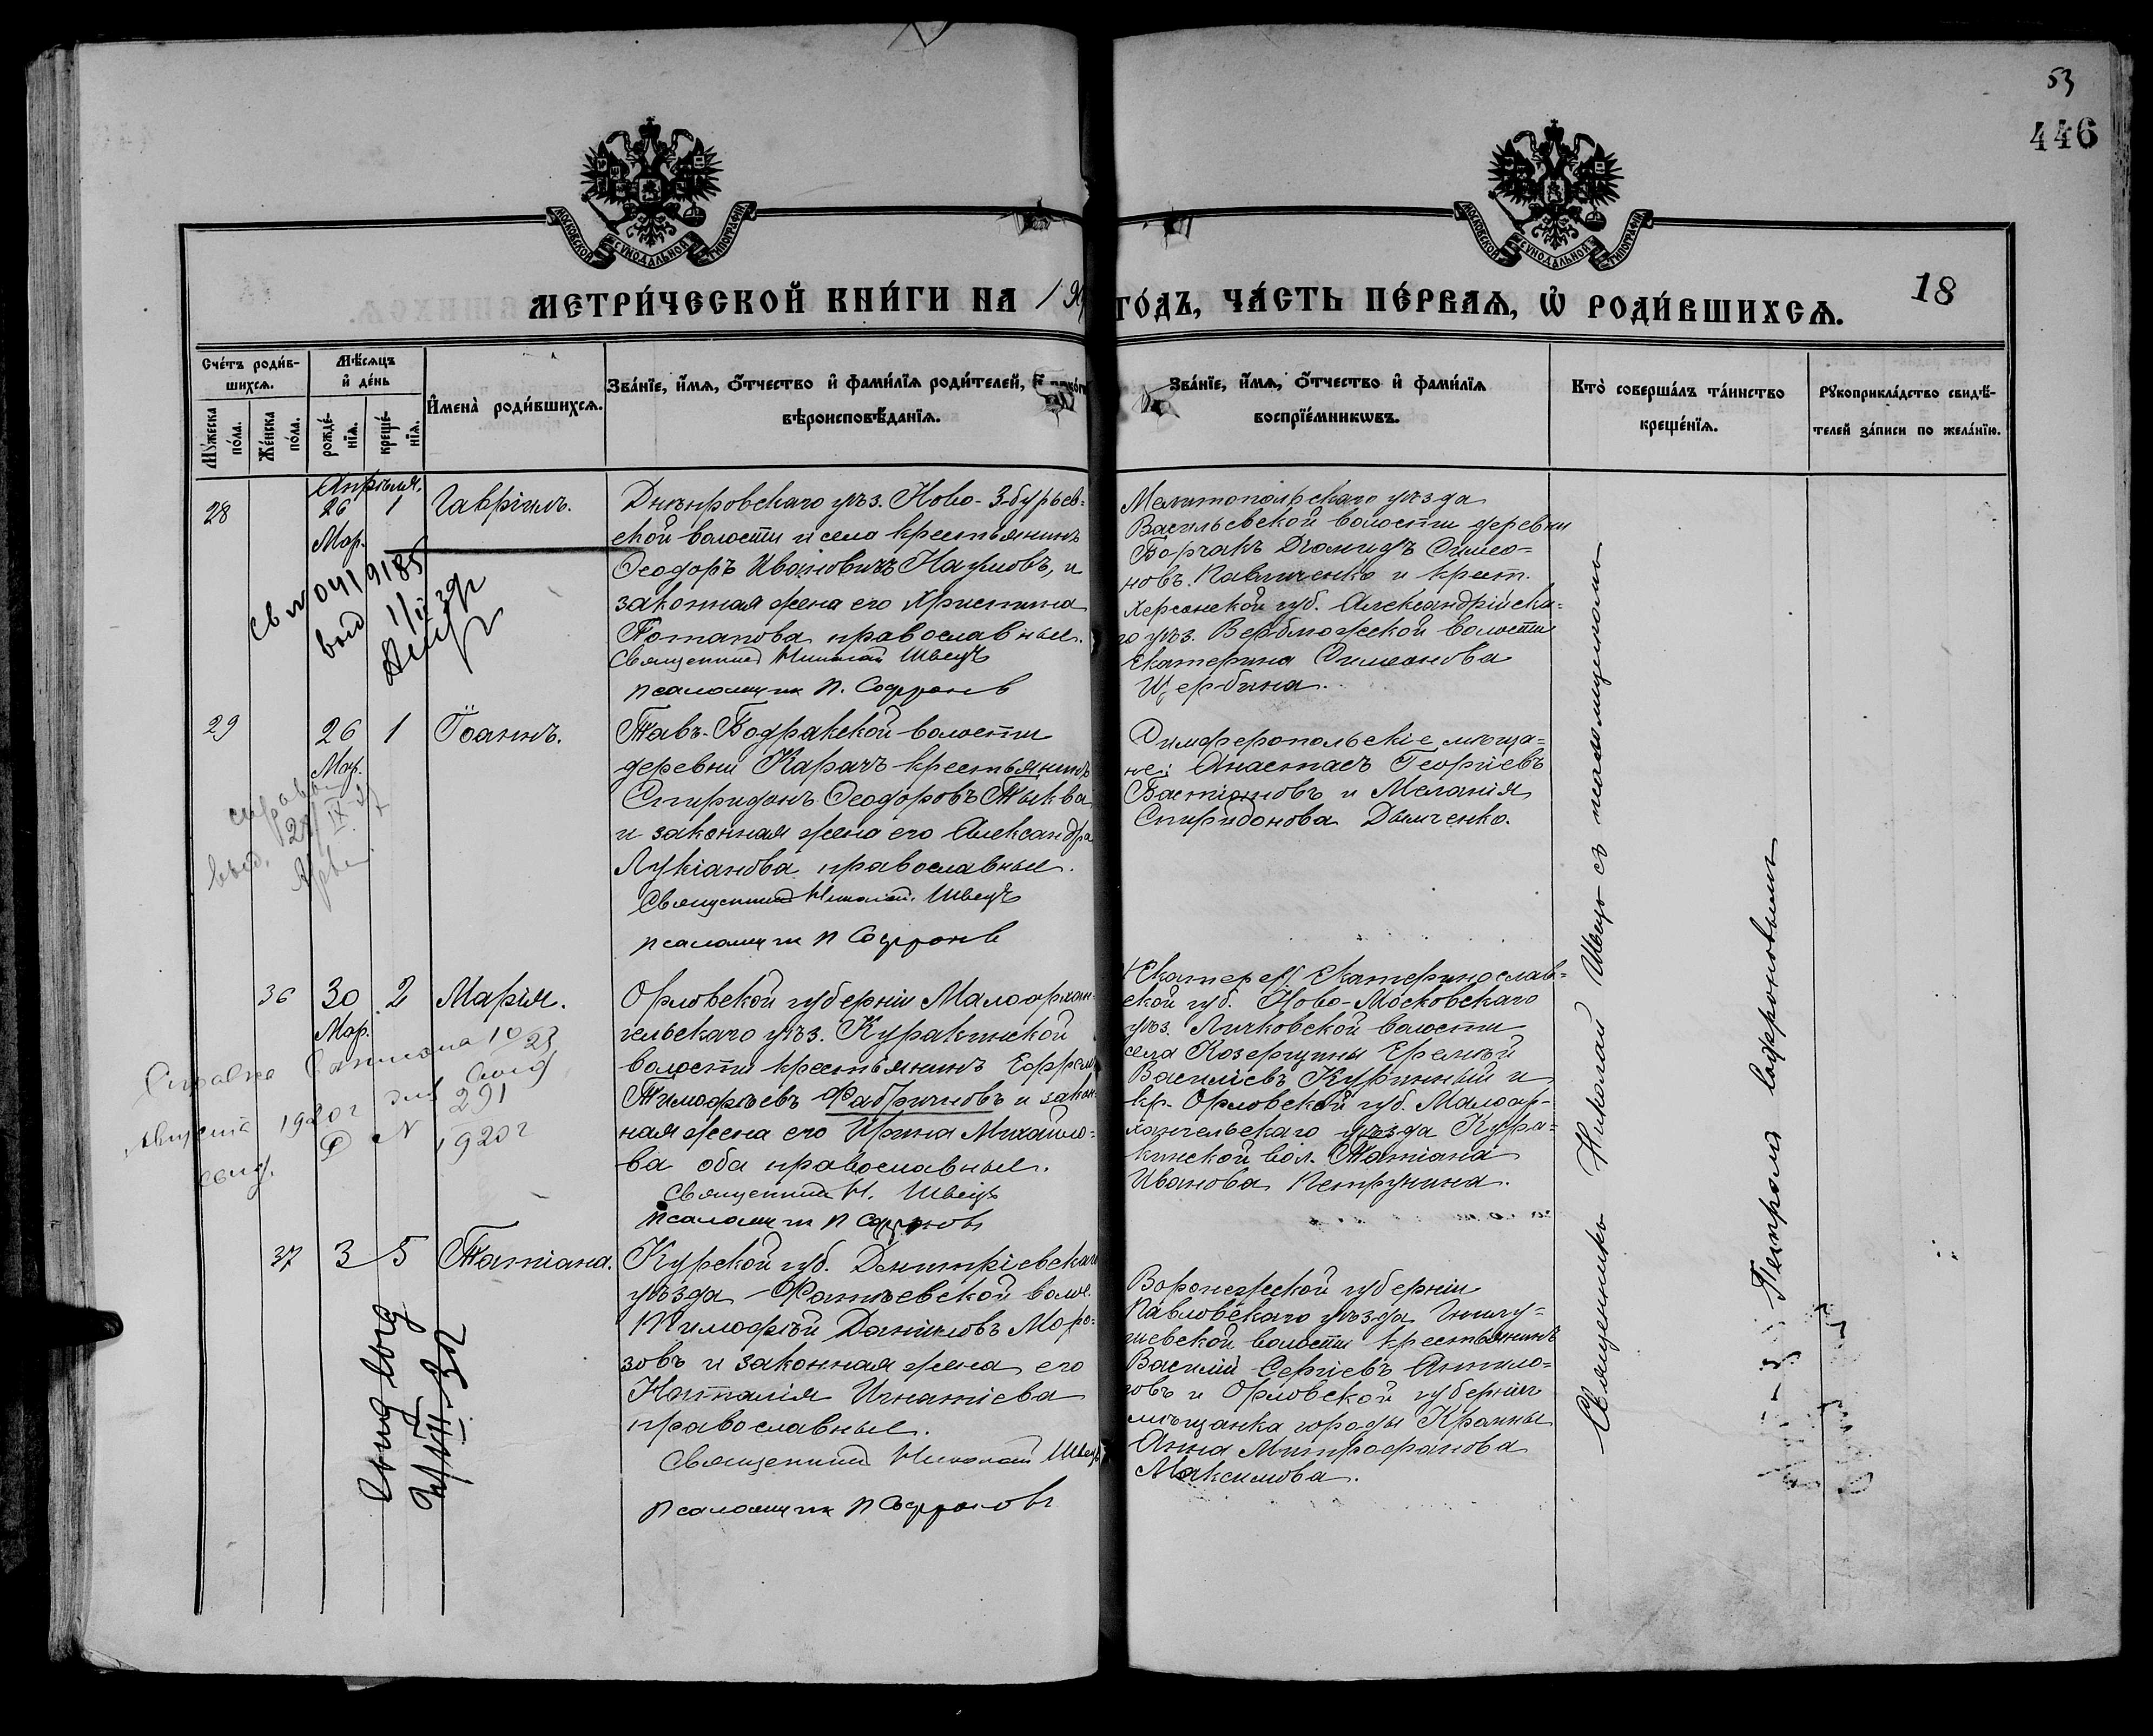 53
446
МОСКОВСКОЙ СѴНОДАЛЬНОЙ ТИПОГРАФІИ
МОСКОВСКОЙ СѴНОДАЛЬНОЙ ТИПОГРАФІИ
МЕТРИ́ЧЕСКОЙ КНИ́ГИ НА 19
ГО́ДЪ, ЧА́СТЬ ПЕ́РВАѦ, Ѿ РОДИ́ВШИХСѦ.
18
Сче́тъ роди́в-
шихсѧ.
Мꙋ́жеска по́ла.
Же́нска по́ла.
Мѣ́сѧцъ
и де́нь
рожде́-
нїѧ.
креще́-
нїѧ.
Имена̀ роди́вшихсѧ.
Зва́нїе, и́мѧ, ѻ́тчество и фами́лїѧ роди́телей,
вѣроисповѣ́данїѧ.
Зва́нїе, и́мѧ, ѻ́тчество и фами́лїѧ
воспрїе́мникѡвъ.
Кто̀ соверша́лъ та́инство
креще́нїѧ.
Рꙋкоприкла́дство свидѣ́-
телей за́писи по жела́нїю.
Апрѣля,
28
26
Мар.
1
Гавріилъ.
Днѣпровскаго уѣз. Ново-Збурьев-
ской волости и села крестьянинъ
Ѳеодоръ Ивановичъ Наумовъ, и
законная жена его Христина
Потапова православные.
Священникъ Николай Швецъ
псаломщик П. Софронов
Мелитопольскаго уѣзда
Васильевской волости деревни
Борчакъ Діомидъ Симео-
новъ Павличенко и крест.
Херсонской губ. Александрійска-
го уѣз. Верблюжской волости
Екатерина Симеонова
Щербина.
29
26
Мар.
1
Іоаннъ.
Тавъ-Бодракской волости
деревни Карачъ крестьянинъ
Спиридонъ Ѳеодоровъ Тыква
и законная жена его Александра
Лукіанова православные.
Священникъ Николай Швецъ
псаломщик П Софронов
Симферопольскіе мѣща-
не: Анастасъ Георгіевъ
Бастіановъ и Меланія
Спиридонова Дымченко.
36
30
Мар.
2
Марія.
Орловской губерніи Малоархан-
гельскаго уѣз. Куракинской
волости крестьянинъ Ефрем
Тимофѣевъ Фабричновъ и закон-
ная жена его Ирина Михайло-
ва оба православные.
Священник Н. Швецъ
Псаломщик П Софронов
Екатеринослав-
ской губ. Ново-Московскаго
уѣз. Личковской волости
села Козерщины Еремѣй
Василіевъ Куринный и
кр. Орловской губ. Малоар-
хангельскаго уѣзда Кура-
кинской вол. Татіана
Иванова Петрунина.
37
3
5
Татіана.
Курской губ. Дмитріевскаго
уѣзда Фатѣевской волос.
Тимофѣй Даниловъ Моро-
зовъ и законная жена его
Наталія Игнатіева
православные.
Священник Николай Швецъ
псаломщик П Софроновъ
Воронежской губерніи
Павловскаго уѣзда
волости крестьянинъ
Василій Сергіевъ
и Орловской губерніи
мѣщанка города Кромы
Анна Митрофанова
Максимова.
Священникъ Николай Швецъ съ псаломщикомъ
Петромъ Софроновымъ